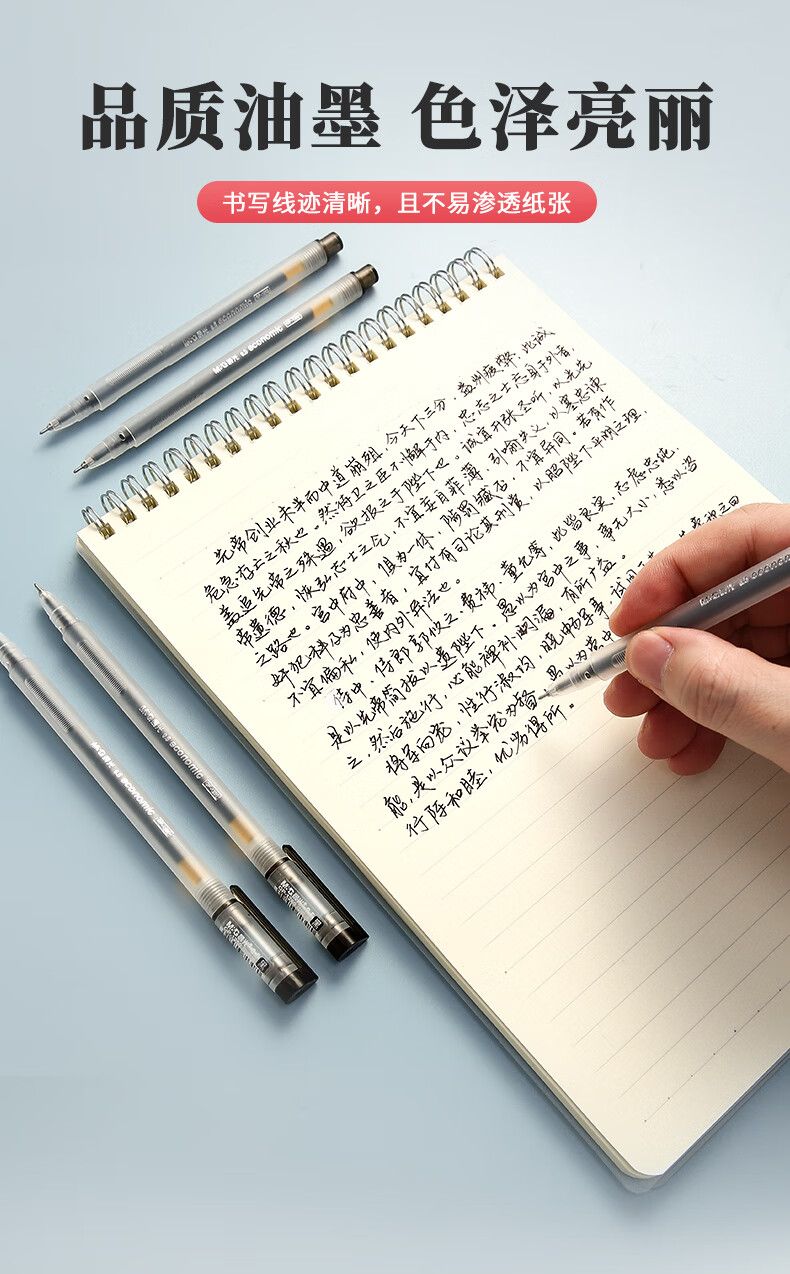 品质油墨 色泽亮丽
书写线迹清晰，且不易渗透纸张
先帝创业未半而中道崩殂，今天下三分，益州疲弊，此诚
危急存亡之秋也。然侍卫之臣不懈于内，忠志之士忘身于外者
盖追先帝之殊遇，欲报之于陛下也。诚宜开张圣听，以光先
帝遗德，恢弘志士之气，不宜妄自菲薄，引喻失义，以塞忠谏
之路也。宫中府中，俱为一体，陟罚臧否，不宜异同。若有作
奸犯科及为忠善者，宜付有司论其刑赏，以昭陛下平明之理，
不宜偏私，使内外异法也。
侍中、侍郎郭攸之、费祎、董允等，此皆良实，志虑忠纯，
是以先帝简拔以遗陛下。愚以为宫中之事，事无大小，悉以咨
之，然后施行，必能裨补阙漏，有所广益。
将军向宠，性行淑均，晓畅军事，试用
能，是以众议举宠为督
愚以为营中
行阵和睦，优劣得所。
M&G晨光 economic
M&G晨光 economic
M&G晨光 economic
M&G晨光 economic
M&G晨光
M&G晨光